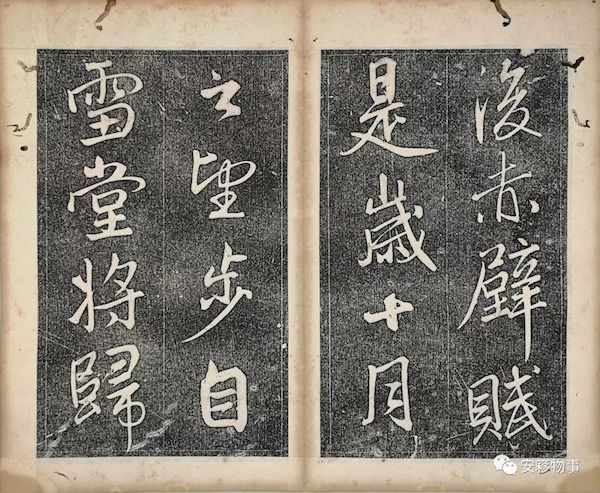 後赤壁賦
是歲十月
之望步自
雪堂將歸
安簃物事